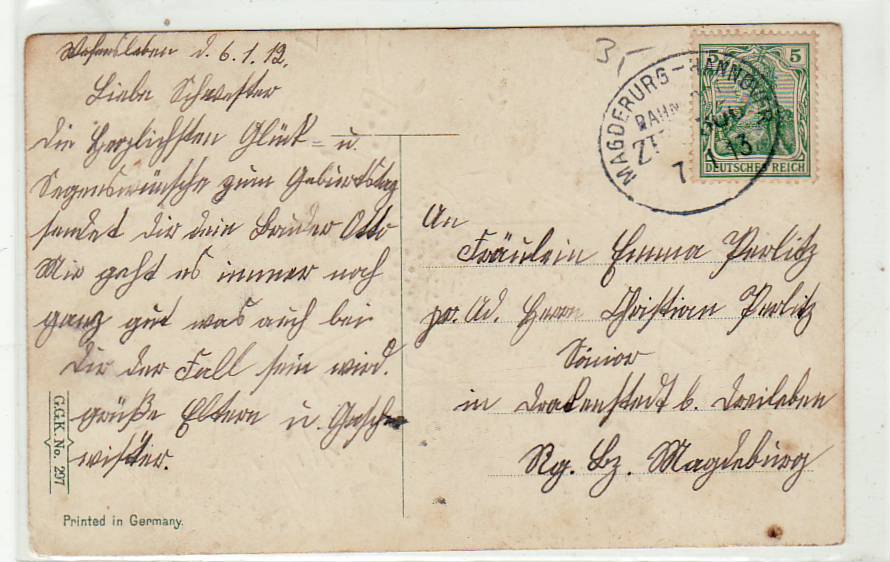 d. 6.1.12.
Liebe Schwester
die Herzlichsten Glück- u.
Segenswünsche zum Geburtstag
sendet dir dein Bruder Otto
Mir geht es immer noch
ganz gut was auch bei
Dir der Fall sein wird.
grüße Eltern u. Gesch-
wister.
G.G.K. No. 297
Printed in Germany.
3,–
MAGDEBURG-HANNOVER
BAHN
7.1.13
5
DEUTSCHES REICH
An
Fräulein Emma Perlitz
pr. Ad. Herrn Christian Perlitz
Sönior
in Drakenstedt b. Dreileben
Rg. Bz. Magdeburg